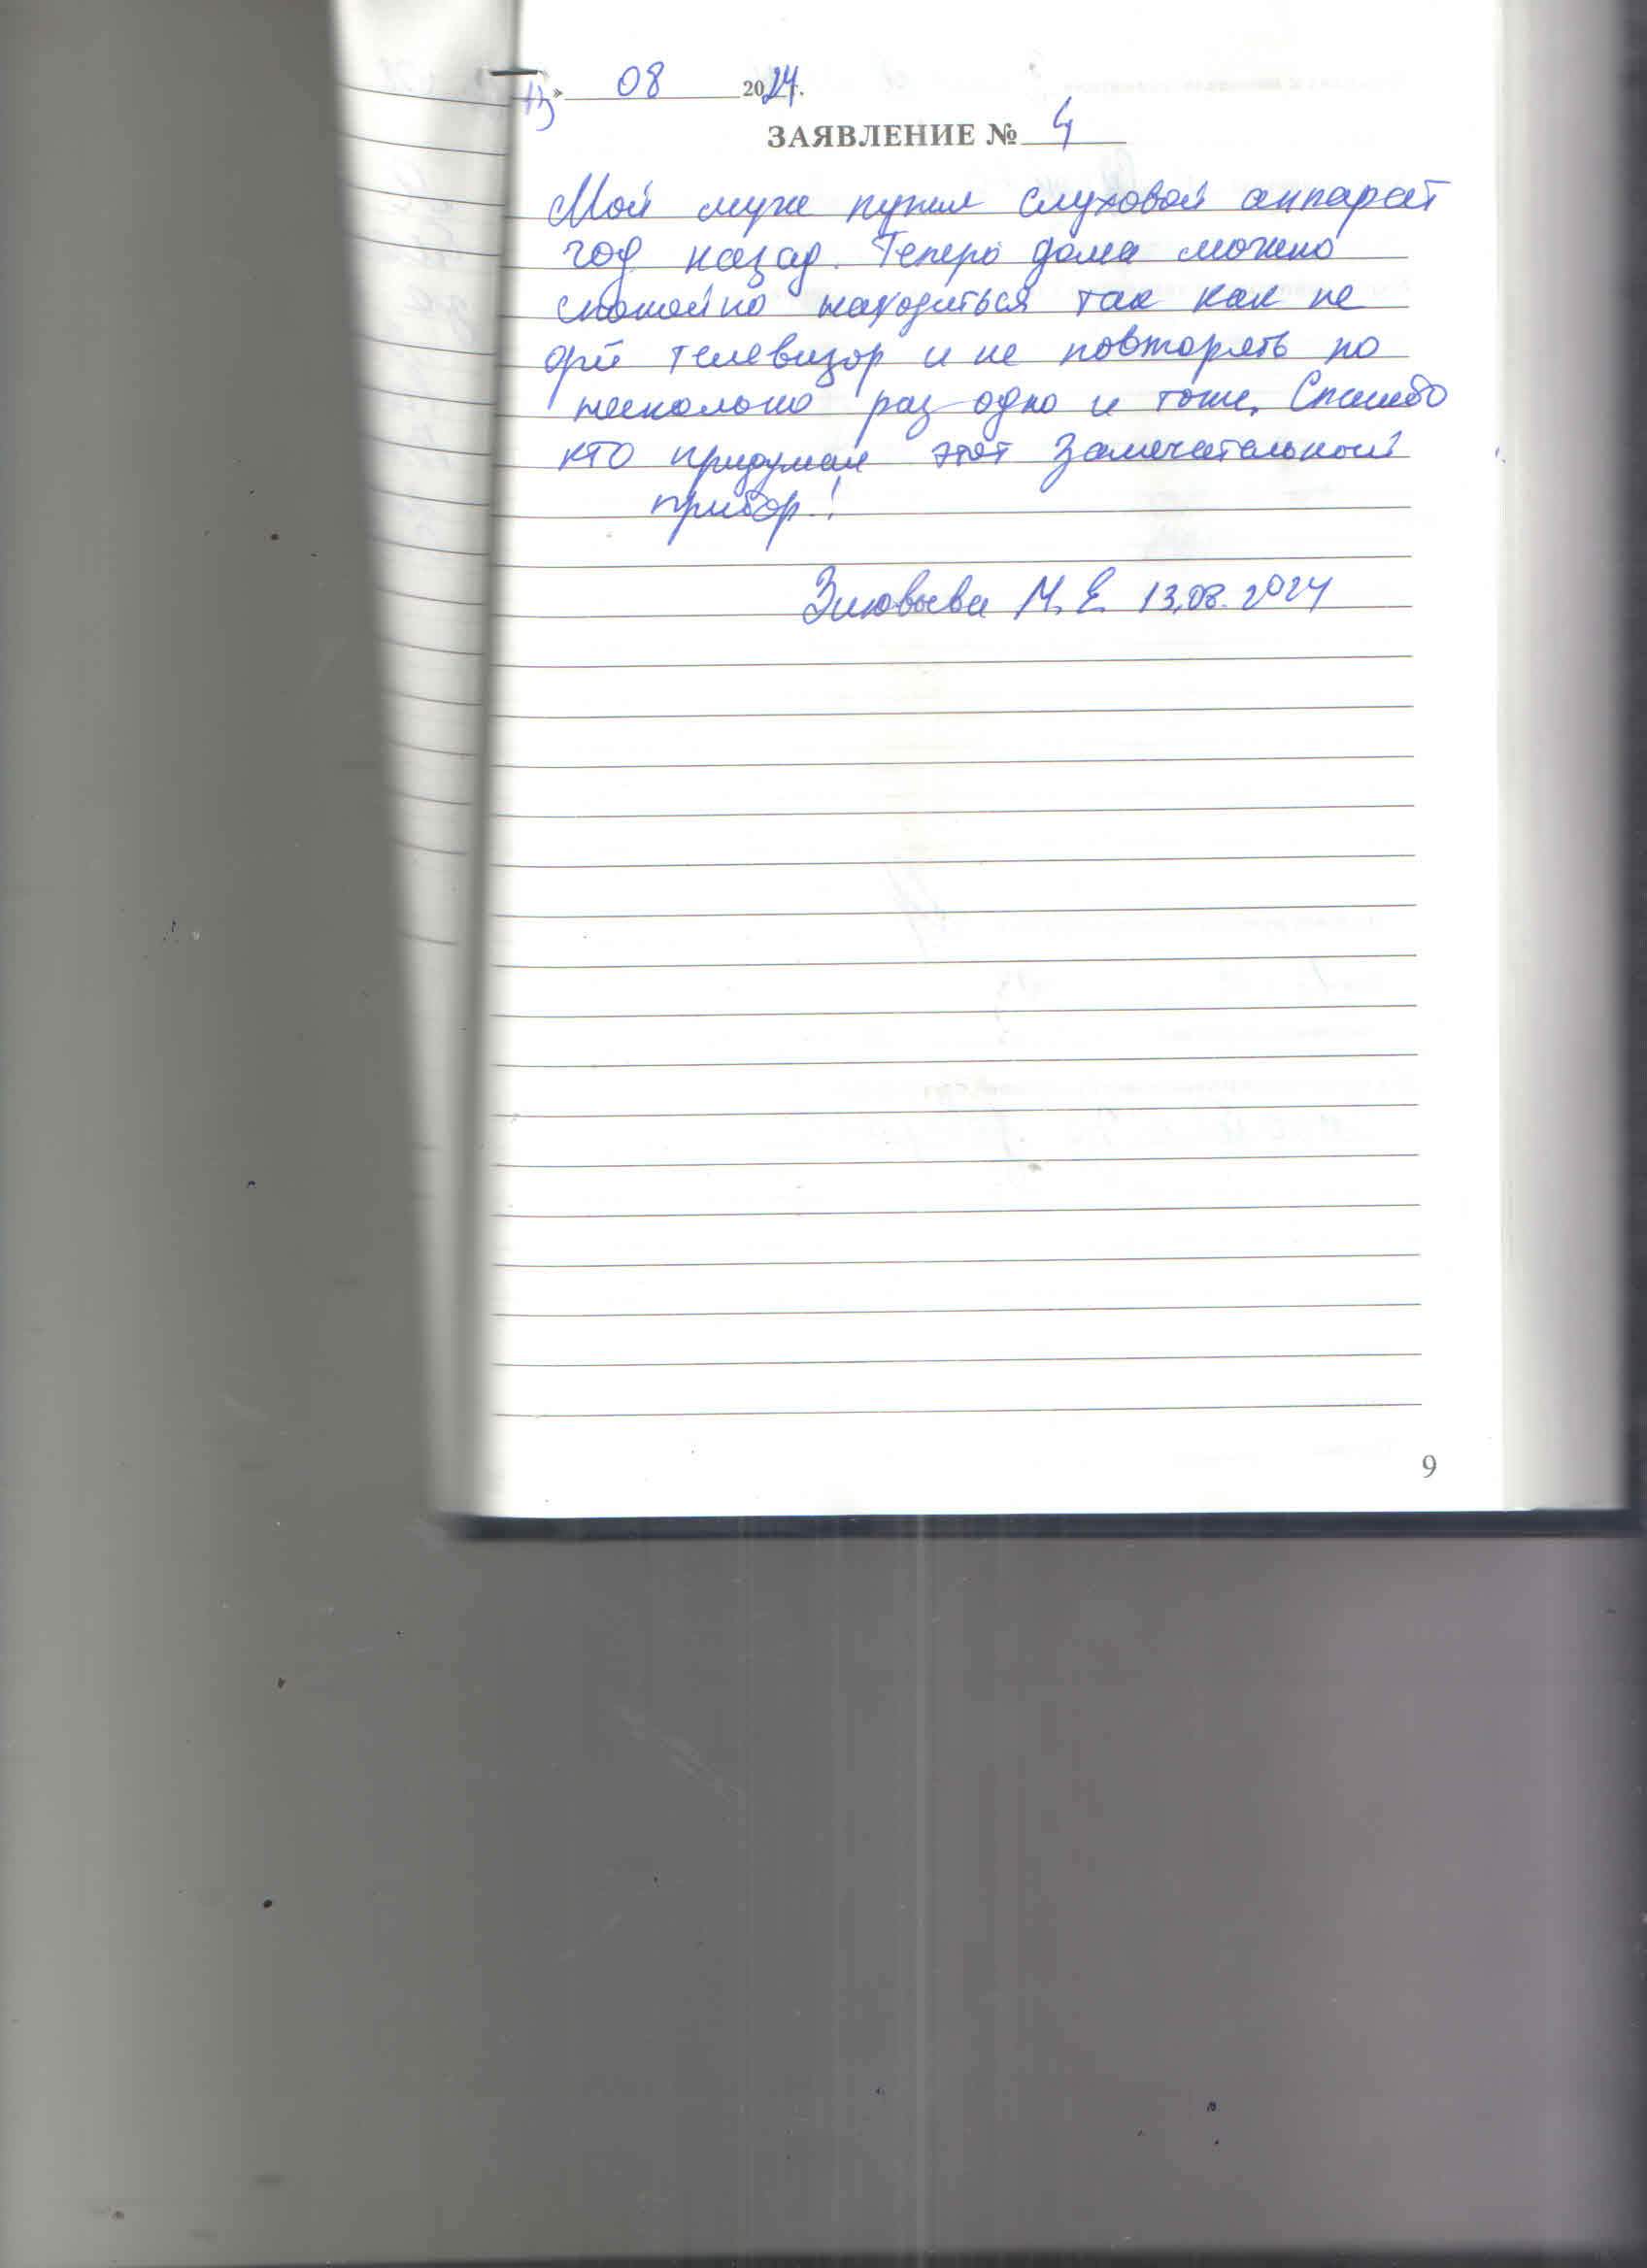 13» 08 2024г.
ЗАЯВЛЕНИЕ № 4
Мой муж купил слуховой аппарат
год назад. Теперь дома можно
спокойно находиться так как не
орёт телевизор и не повторять по
несколько раз одно и тоже. Спасибо
кто придумал этот замечательной
прибор!
Зиновьева М. Е. 13.08.2024
9